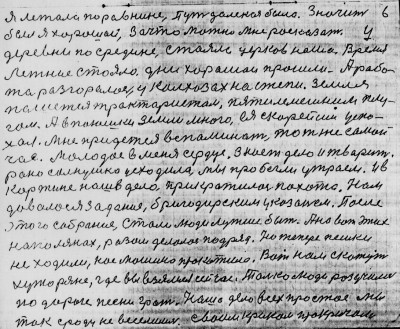 Я летала по равнине, Путь далекай было. Значит 6
был я хорошай, За что можно мне росказат. У
деревни по средине, стаяла церков наша. Время
Летнее стояло. дни хорашаи прошли. А рабо
та разгоралос, у Колхозах на степи. Земля
пашется трактористам, пятилемешным плу
гом. А в пашни земли много, ея скорей
хал. Мне придется вспаминат, тот же самой
час. Молодое в меня сердце, Знает дело и творит.
рано солнушко усходила, мы пробегли утрием. И в
картине наше дело, прикратилас пахота. Нам
давалося Задания, бригадирским указам. После
этого собрания, Стали люди лутше быт. А на вот этих
на полянах, работ делалос подряд. Но теперь пешки
не ходили, нас машино прокатило. Вот нам скажут
хуторяне, где вы взялис сечас. Толко люди
по дароге песни грают. Наше дело всех простое мы
так сроду не веселили. Своим криком прокричали